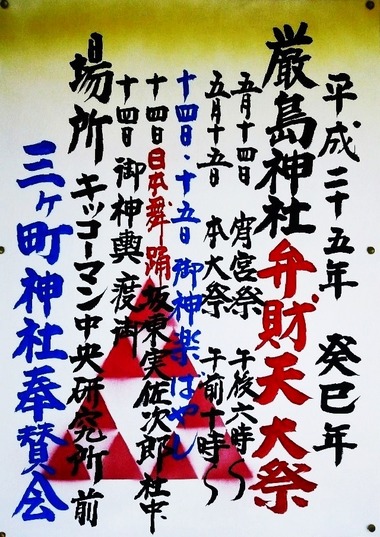 平成二十五年 癸巳年
厳島神社 弁財天大祭
五月十四日 宵宮祭 午後六時〜
五月十五日 本大祭 午前十時〜
十四日・十五日 御神楽ばやし
十四日 日本舞踊 坂東実佐次郎社中
十四日 御神輿渡御
場所 キッコーマン中央研究所前
三ヶ町神社奉賛会